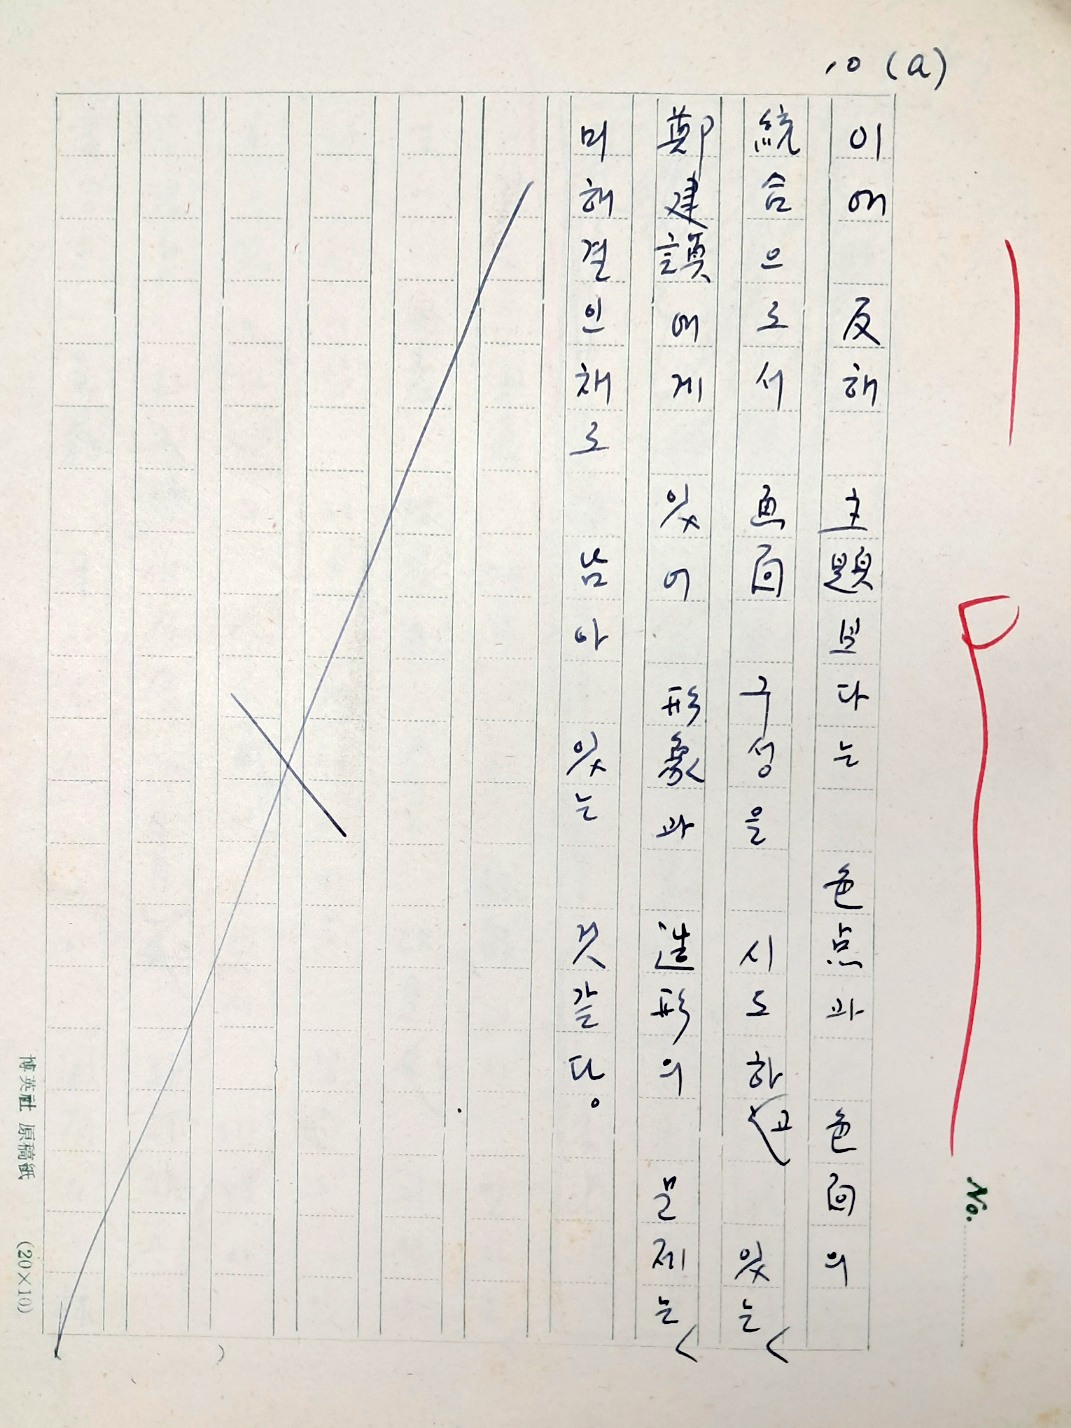 10 (a)
이에 反해 主題보다는 色点과 色面의
統合으로서 画面 구성을 시도하고 있는
鄭建謨에게 있어 形象과 造形의 문제는
미해결인채로 남아 있는 것 같다.
No.
博英社 原稿紙 (20×10)